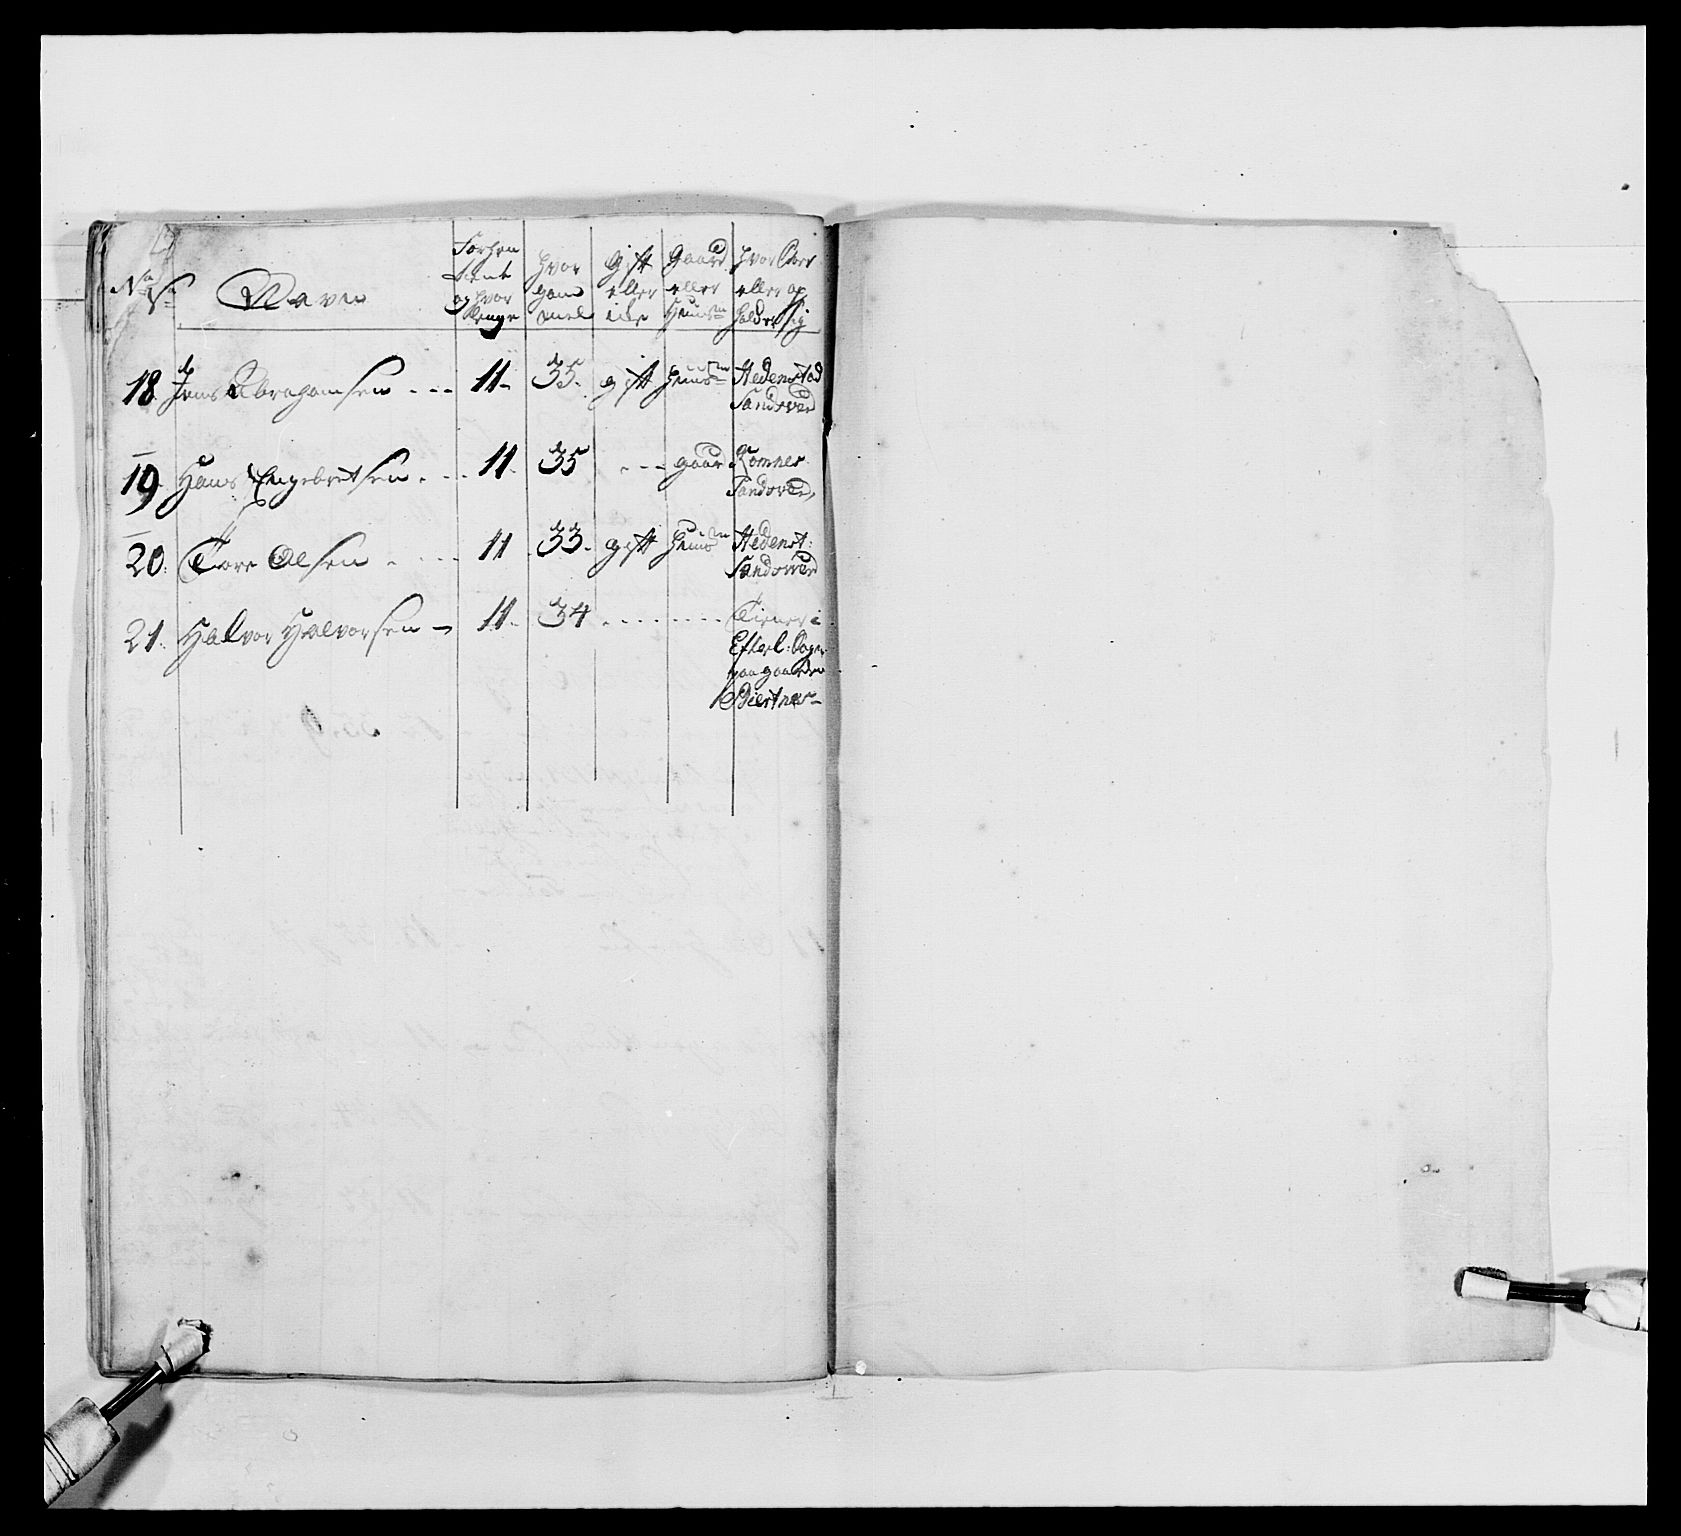 No Navn Forhen tient og hvor lenge hvor gam mel Gift eller ikke Gaard eller Huusm hvor Boer eller op holder sig
18. Jens Abrahamsen - - - 11. 35. gift huusm Hedenstad
Sandsverd
19. Hans Engebretsen. - - 11. 35 . - - - gaard Komnes
Sandsverd
20. Tore Olsen . - - - 11 . 33. gift huusm Hedenst:
Sandsverd
21. Halvor Halvorsen - 11. 34 . - - - - - - - Tiener i
Efterl: Sogn
paa gaarden